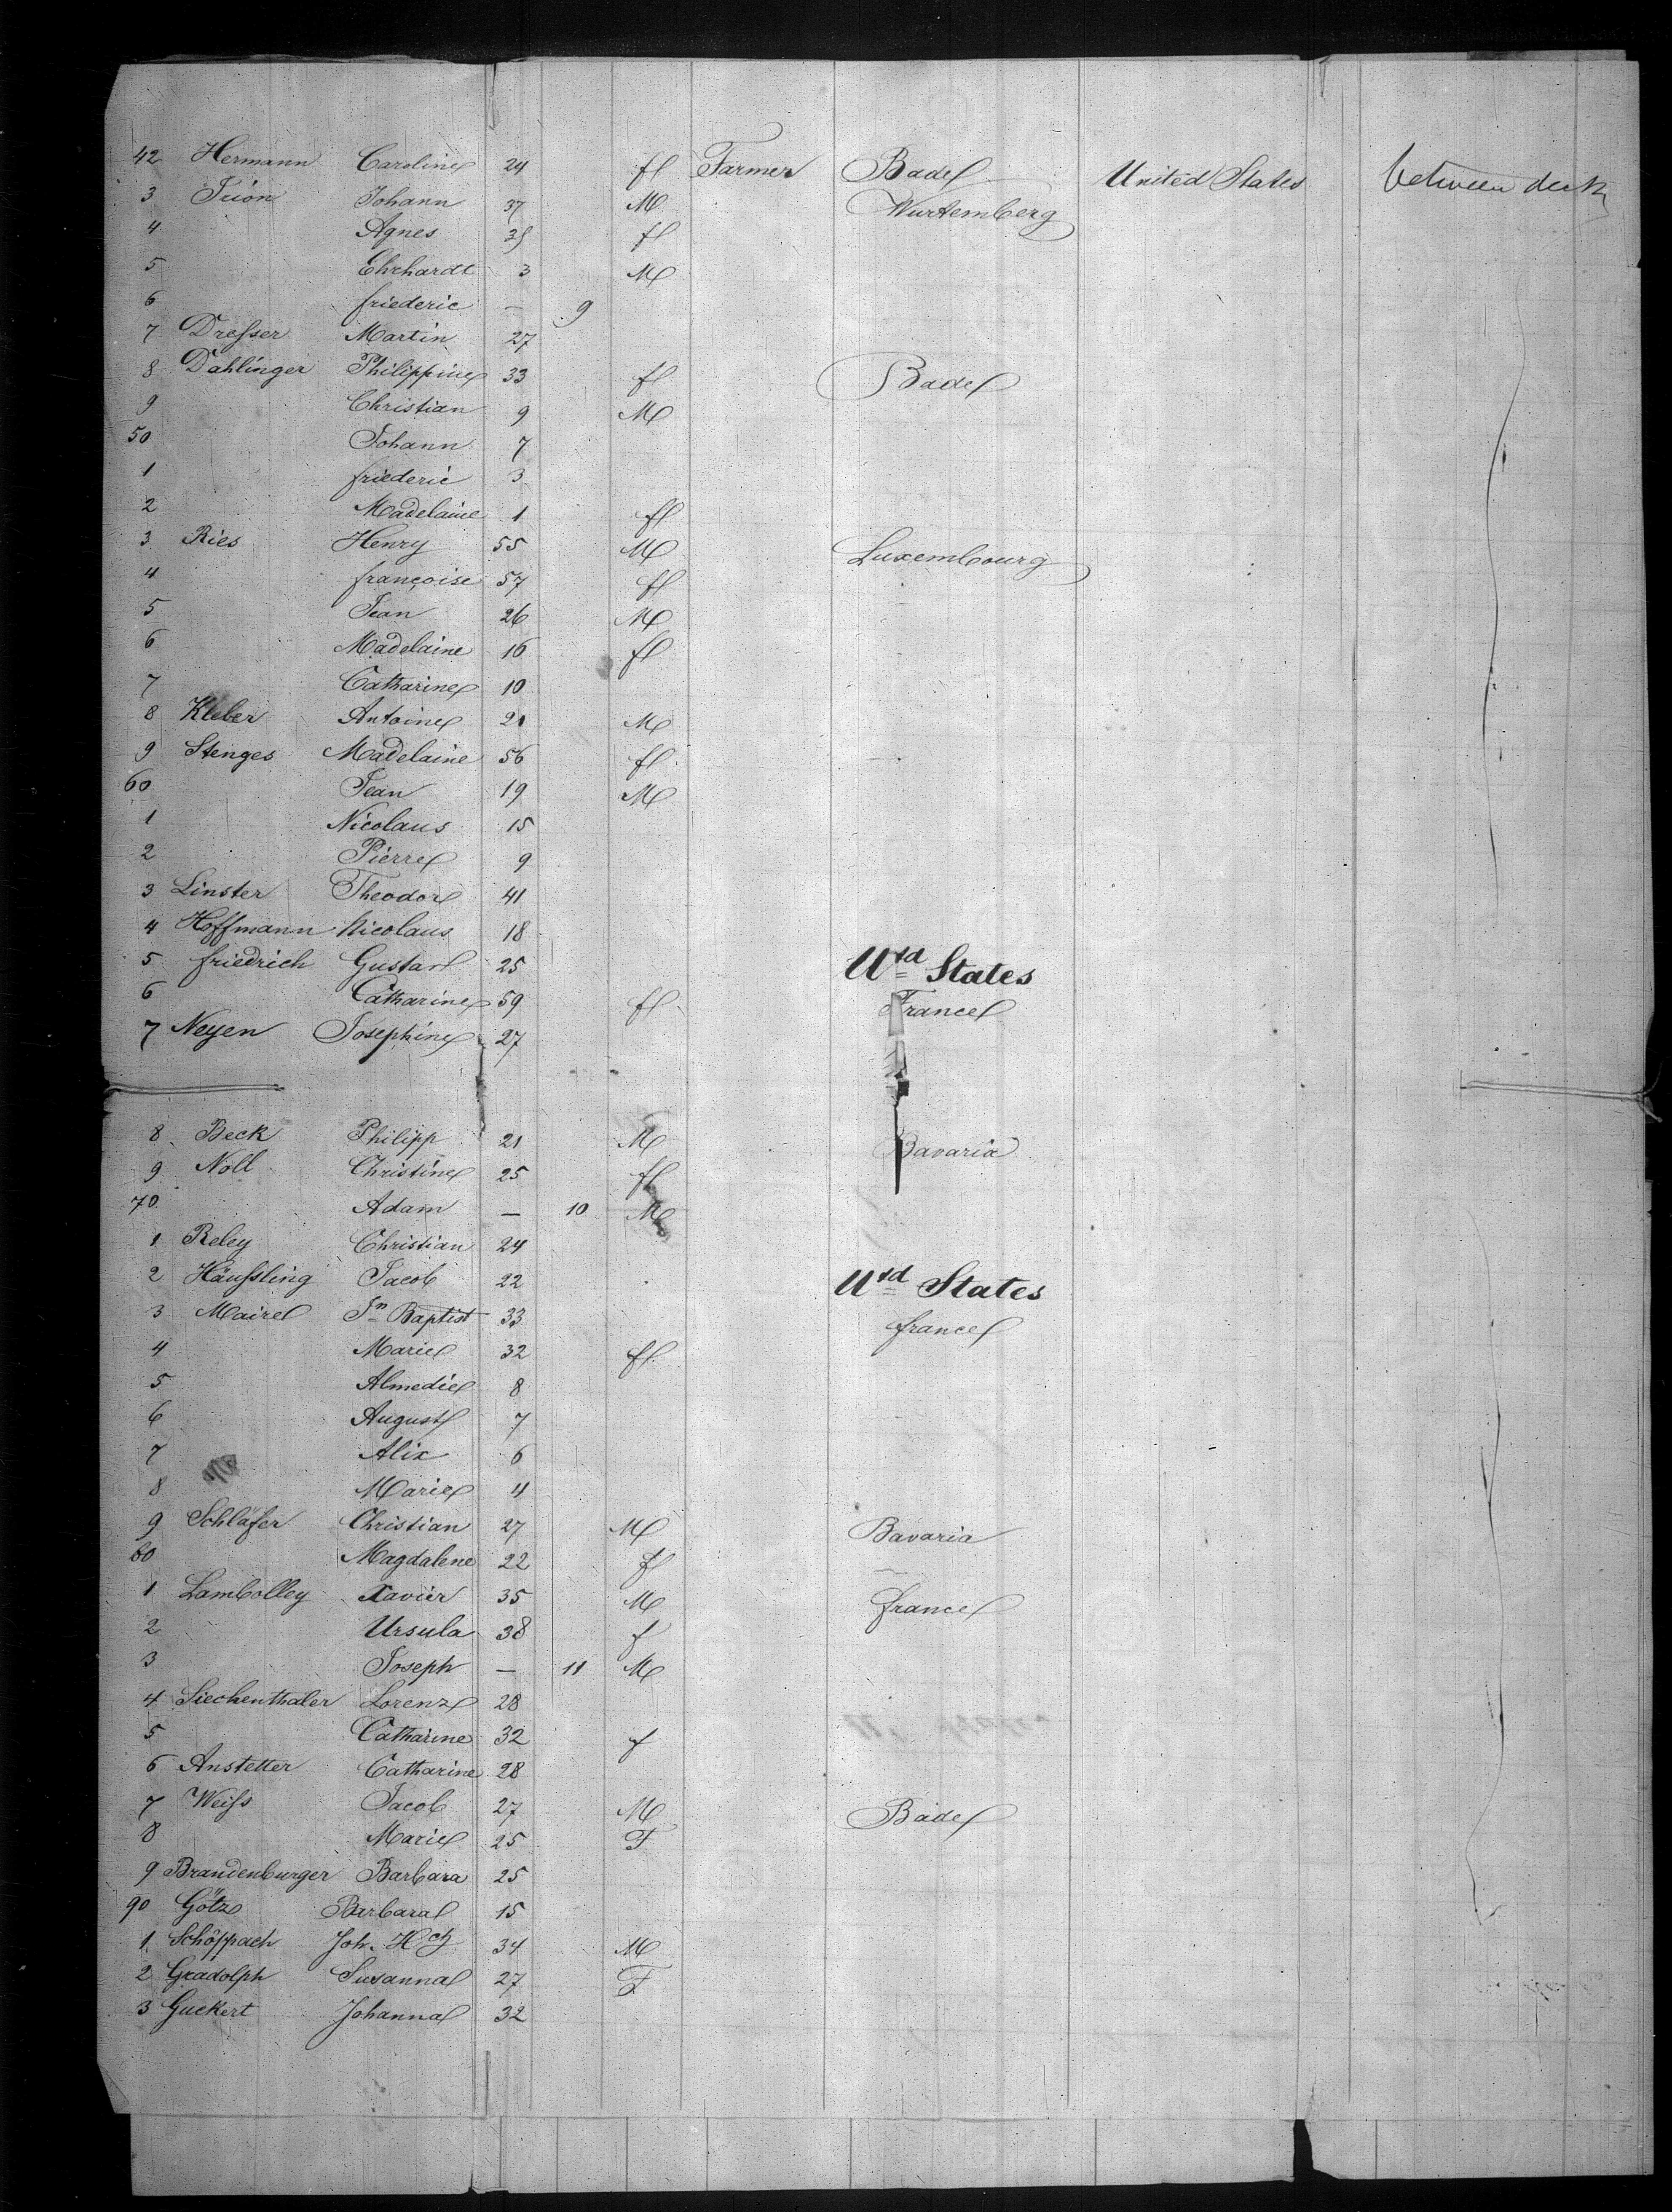 42 Hermann Caroline 24 fl Farmer Bade United States between deck
3 Johann 37 M Wurtemberg
4 Agnes 35 fl
5 Ehrhardt 3 M
6 friederic — 9
7 Dreſser Martin 27
8 Dahlinger Philippine 33 fl Bade
9 Christian 9 M
50 Johann 7
1 friederic 3
2 Madelaine 1 fl
3 Ries Henry 55 M Luxembourg
4 françoise 57 fl
5 Jean 26 M
6 Madelaine 16 fl
7 Catharine 10
8 Kleber Antoine 21 M
9 Stenges Madelaine 56 fl
60 Jean 19 M
1 Nicolaus 15
2 Pierre 9
3 Linster Theodore 41
4 Hoffmann Nicolaus 18
5 friedrich Gustav 25 Utd States
6 Catharine 59 fl France
7 Neyen Josephine 27
8 Beck Philipp 21 M Bavaria
9 Noll Christine 25 fl
70 Adam — 10 M
1 Reley Christian 24
2 Häuſsling Jacob 22 Utd States
3 Maire Jn Baptist 33 france
4 Marie 32 fl
5 Almedie 8
6 August 7
7 Alix 6
8 Marie 4
9 Schläfer Christian 27 M Bavaria
80 Magdalene 22 f
1 Lambolley Xavier 35 M france
2 Ursula 38 f
3 Joseph — 11 M
4 Siechenthaler Lorenz 28
5 Catharine 32 f
6 Anstetter Catharine 28
7 Weiſs Jacob 27 M Bade
8 Marie 25 F
9 Brandenburger Barbara 25
90 Götz Barbara 15
1 Schöppach Joh. Hch 34 M
2 Gradolph Susanna 27 F
3 Guckert Johanna 32